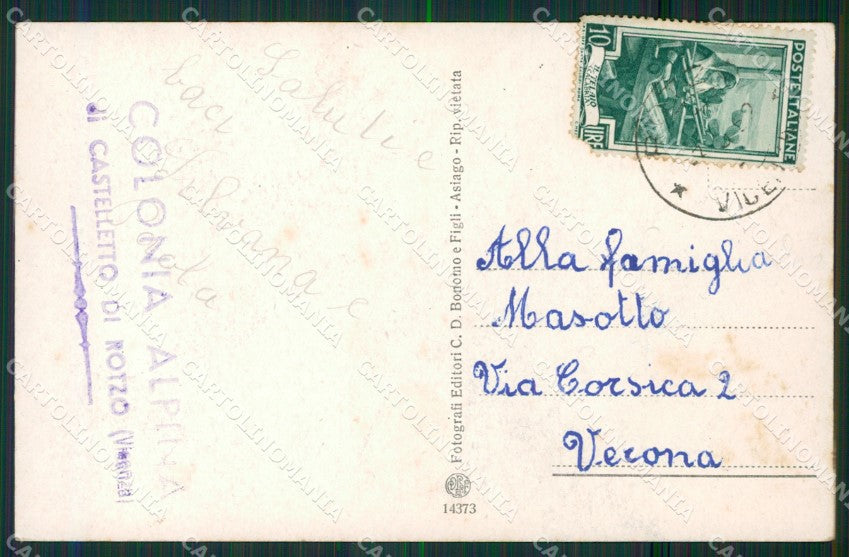 Saluti e
baci Silvana e
COLONIA ALPINA
di CASTELLETTO DI ROTZO (Vicenza)
Fotografi Editori C. D. Bonomo e Figli - Asiago - Rip. vietata
14373
10
LIRE
POSTE ITALIANE
Alla famiglia
Masotto
Via Corsica 2
Verona
CARTOLINOMANIA